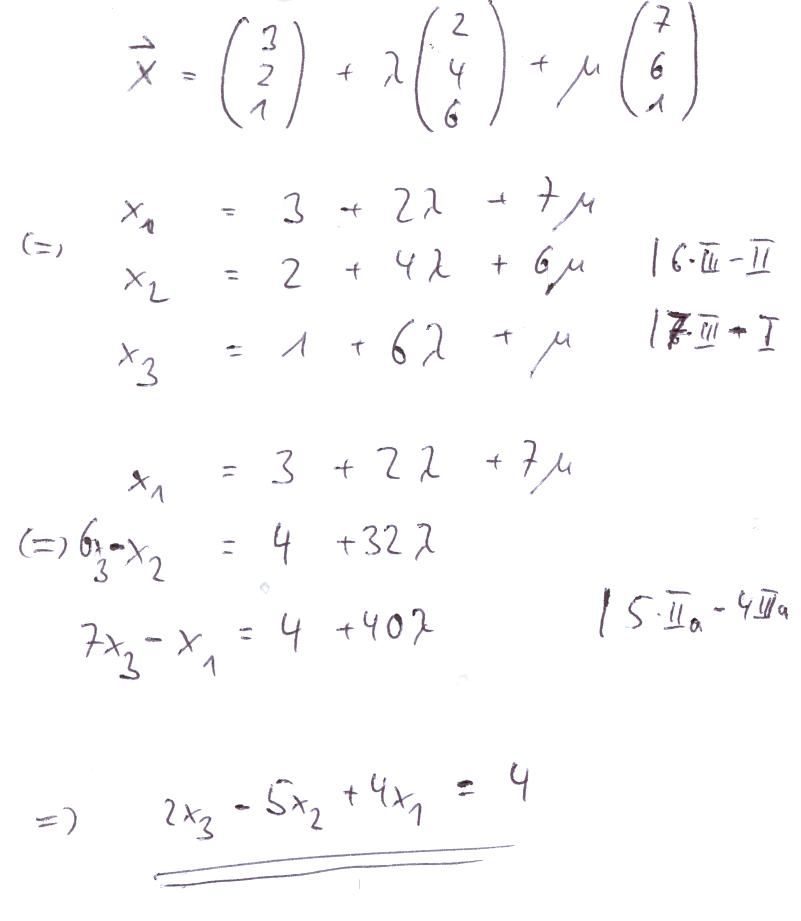 x⃗ = (3 2 1) + λ (2 4 6) + μ (7 6 1)
x₁ = 3 + 2λ + 7μ
(=) x₂ = 2 + 4λ + 6μ | 6·III - II
x₃ = 1 + 6λ + μ | 7·III - I
x₁ = 3 + 2λ + 7μ
(=) 6x₃ - x₂ = 4 + 32λ
7x₃ - x₁ = 4 + 40λ | 5·IIa - 4IIIa
=) 2x₃ - 5x₂ + 4x₁ = 4